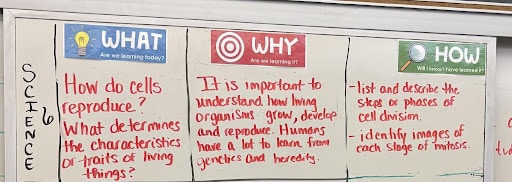 SCIENCE
6
WHAT
Are we learning today?
How do cells
reproduce?
What determines
the characteristics
or traits of living
things?
WHY
Are we learning it?
It is important to
understand how living
organisms grow, develop
and reproduce. Humans
have a lot to learn from
genetics and heredity.
HOW
Will I know I have learned it?
-list and describe the
steps or phases of
cell division.
- identify images of
each stage of mitosis.